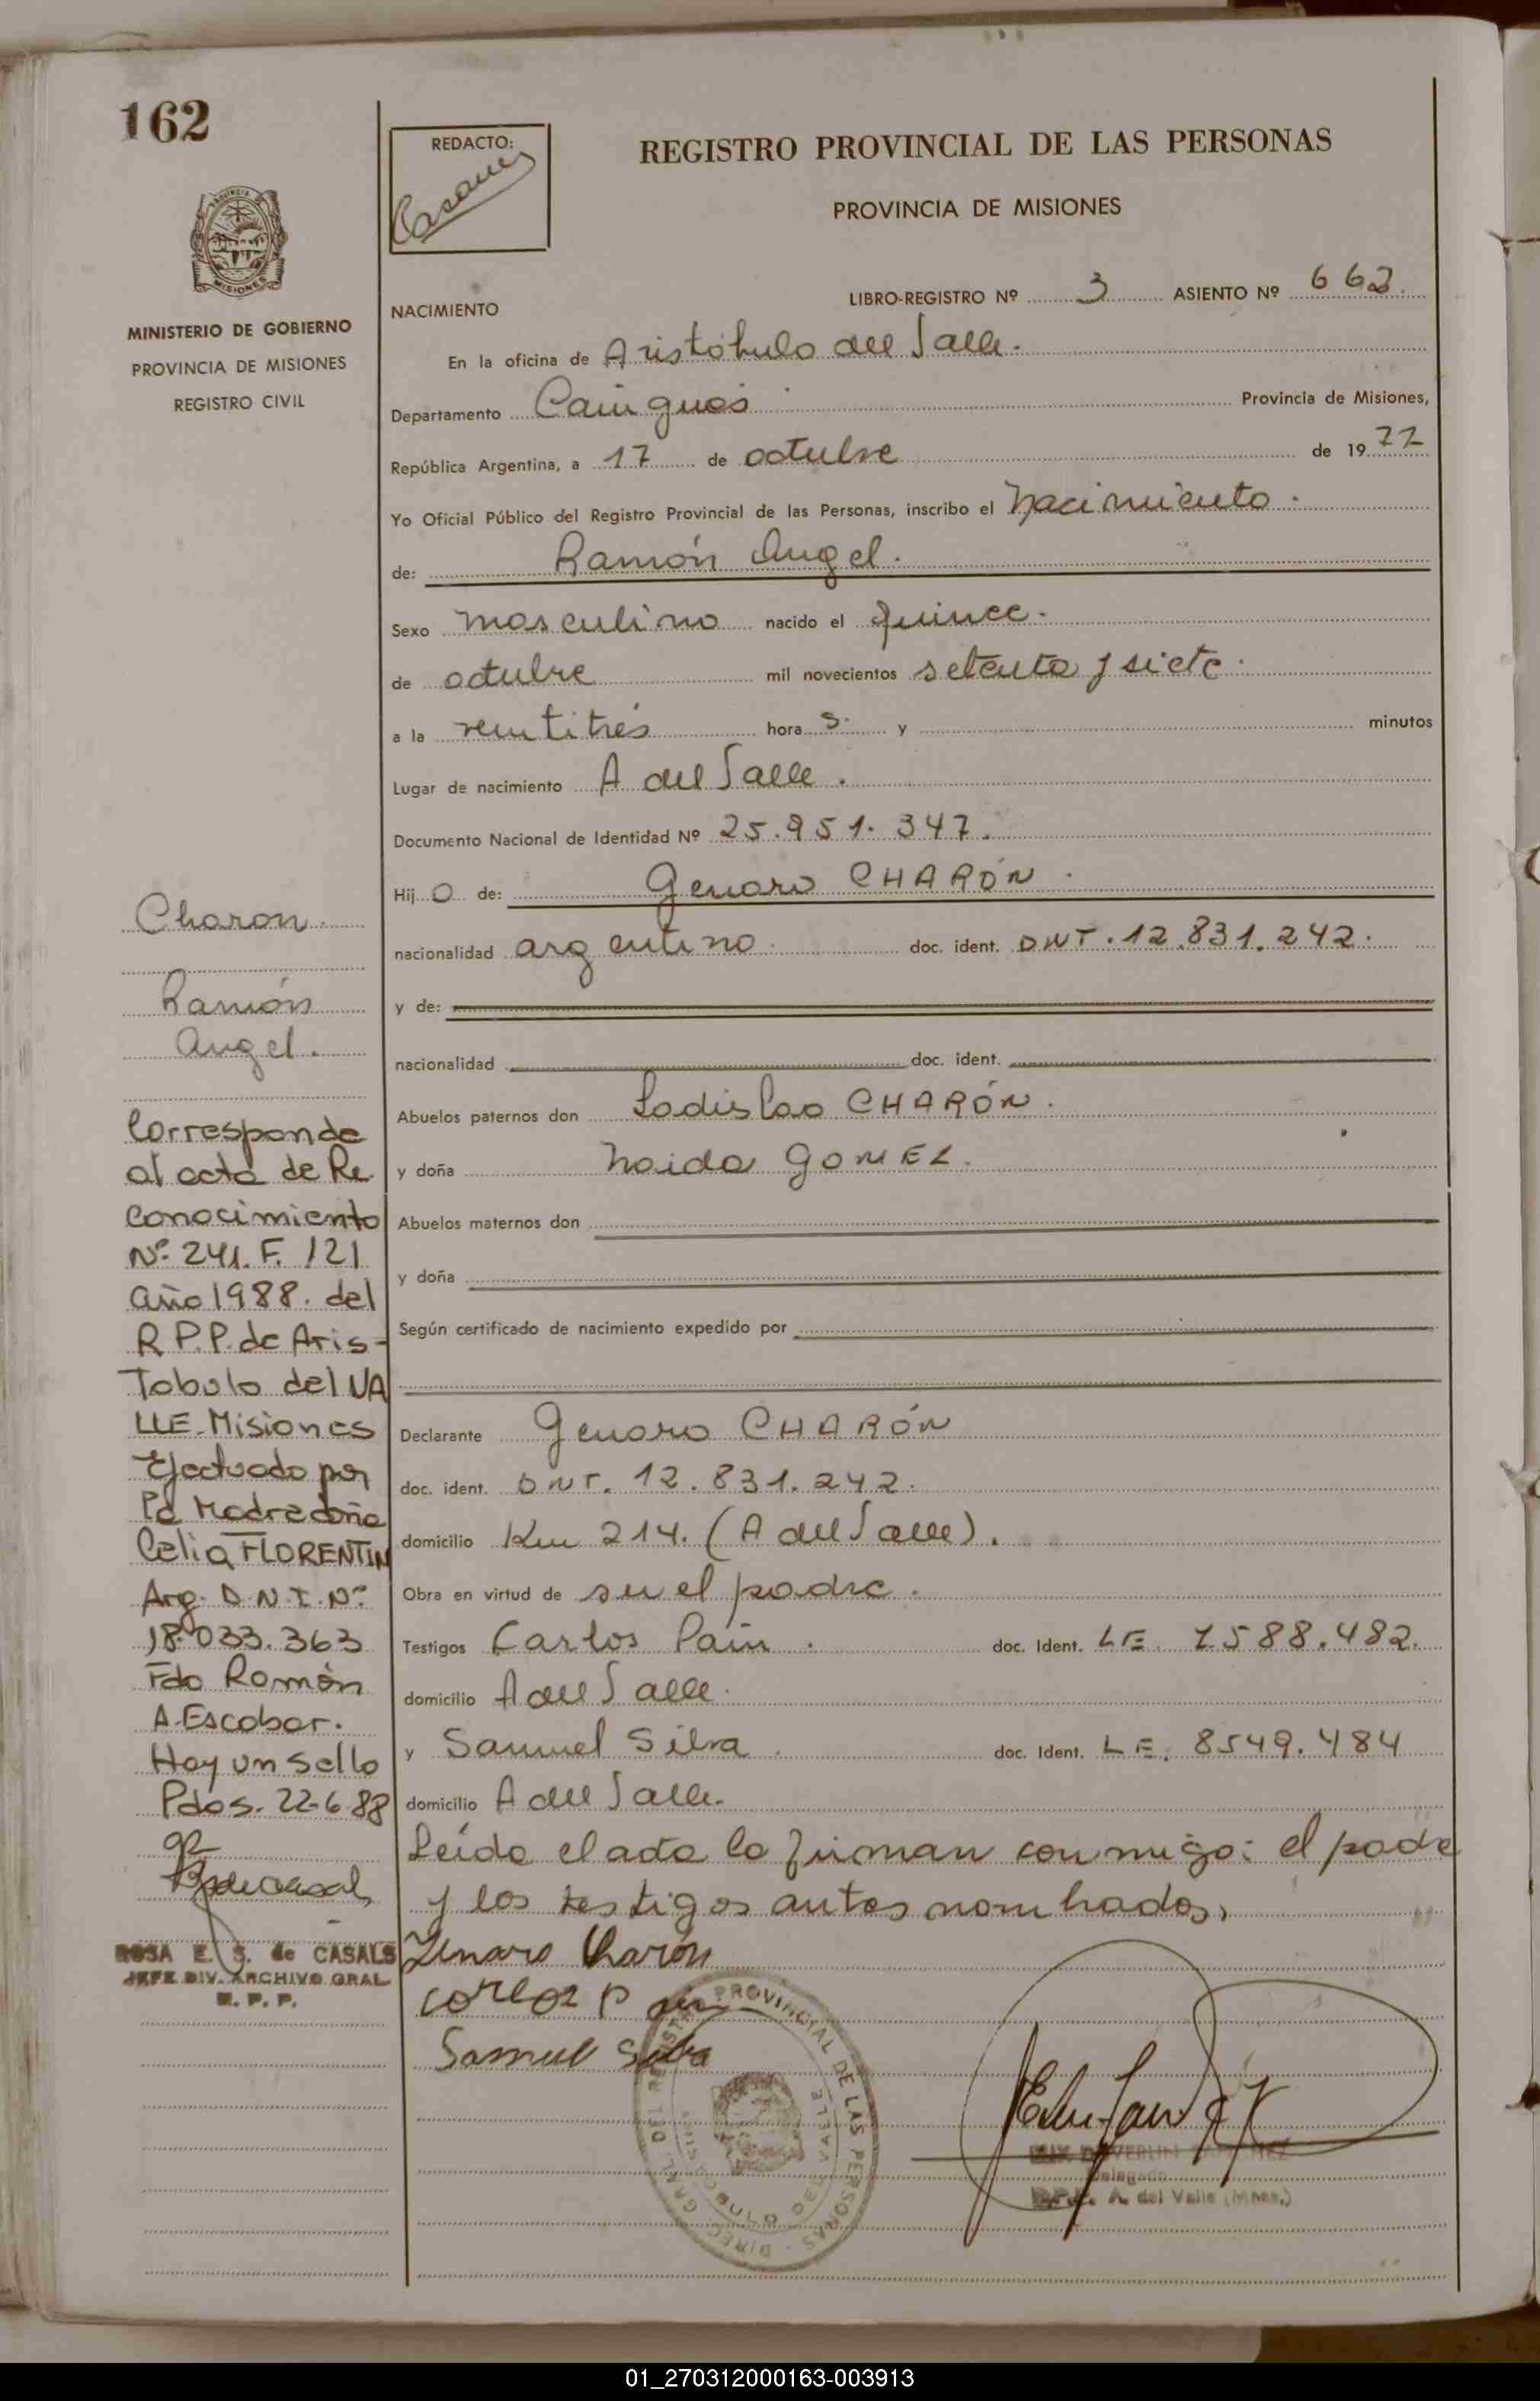 162
REDACTO:
Casans
REGISTRO PROVINCIAL DE LAS PERSONAS
PROVINCIA DE MISIONES
MISIONES
MINISTERIO DE GOBIERNO
PROVINCIA DE MISIONES
REGISTRO CIVIL
LIBRO-REGISTRO Nº 3 ASIENTO Nº 662.
NACIMIENTO
En la oficina de Aristóbulo del Valle.
Departamento Cainguás Provincia de Misiones,
República Argentina, a 17 de octubre de 1977
Yo Oficial Público del Registro Provincial de las Personas, inscribo el Nacimiento.
de: Ramón Angel.
Sexo masculino nacido el quince.
de octubre mil novecientos setenta y siete.
a la veintitrés hora s. y minutos
Lugar de nacimiento A del Valle.
Documento Nacional de Identidad Nº 25.951.347.
Hij o de: Genaro CHARÓN.
nacionalidad argentino. doc. ident. DNI. 12.831.242.
y de:
nacionalidad doc. ident.
Abuelos paternos don Ladislao CHARÓN.
y doña Naida GOMEZ.
Abuelos maternos don
y doña
Según certificado de nacimiento expedido por
Declarante Genaro CHARÓN
doc. ident. DNI. 12.831.242.
domicilio Km 214. (A del Valle).
Obra en virtud de ser el padre.
Testigos Carlos Pain. doc. Ident. LE. 7588.482.
domicilio A del Valle.
y Samuel Silva. doc. Ident. LE. 8549.484
domicilio A del Valle.
Leída el acta la firman conmigo: el padre
y los testigos antes nombrados,
Jenaro Charón
Carlos Pain
Samuel Silva
Charon.
Ramón
Angel.
Corresponde
al acta de Re
conocimiento
Nº 241. F. 121
año 1988. del
R.P.P. de Aris-
Tobulo del VA
LLE-Misiones
Efectuado por
la Madre doña
Celia FLORENTIN
Arg. D.N.I. Nº
18.033.363
Fdo Román
A. Escobar.
Hay un sello
Pdas. 22-6-88
ROSA E. S. de CASALS
JEFE DIV. ARCHIVO GRAL
R. P. P.
DIREC. GRAL. DEL REGISTRO PROVINCIAL DE LAS PERSONAS
Delegado
R.P.P. A. del Valle (Mnes.)
01_270312000163-003913